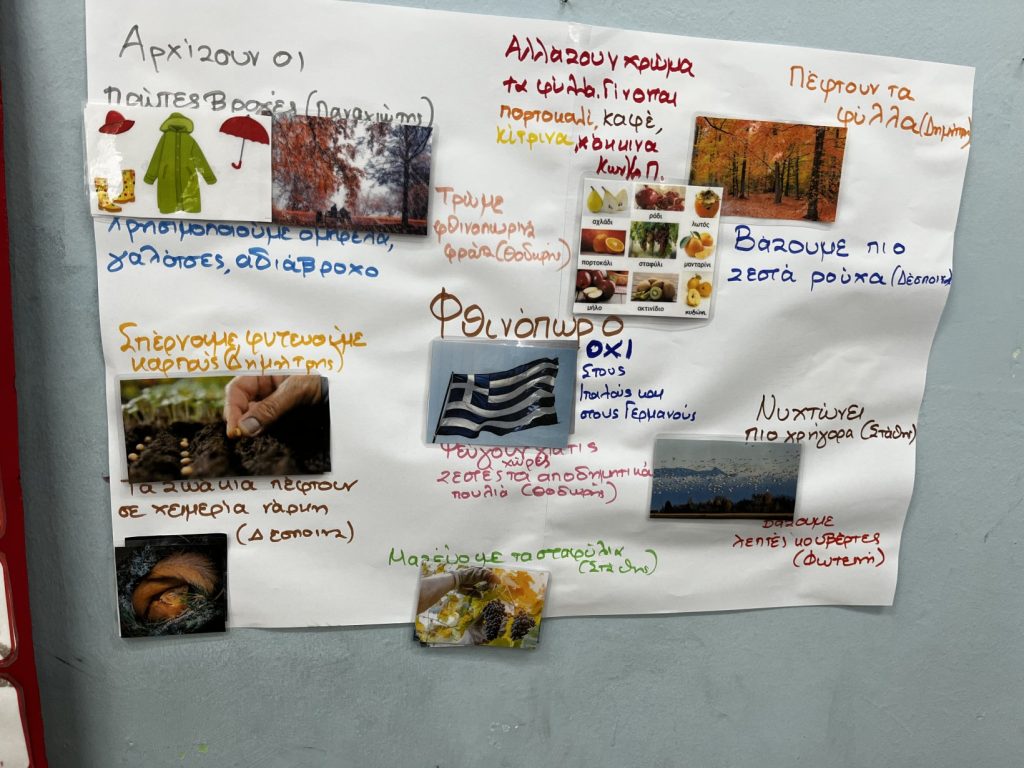 Αρχίζουν οι
πρώτες βροχές (Παναγιώτης)
Χρησιμοποιούμε ομπρέλα,
γαλότσες, αδιάβροχο
Αλλάζουν χρώμα
τα φύλλα. Γίνονται
πορτοκαλί, καφέ,
κίτρινα, κόκκινα
Κων/να Π.
Πέφτουν τα
φύλλα (Δημήτρης)
Τρώμε
φθινοπωρινά
φρούτα (Θοδωρής)
αχλάδι
ρόδι
λωτός
πορτοκάλι
σταφύλι
μανταρίνι
μήλο
ακτινίδιο
κυδώνι
Βάζουμε πιο
ζεστά ρούχα (Δέσποινα)
Φθινόπωρο
ΟΧΙ
Στους
Ιταλούς και
στους Γερμανούς
Σπέρνουμε, φυτεύουμε
καρπούς (Δημήτρης)
Τα ζωάκια πέφτουν
σε χειμερία νάρκη
(Δέσποινα)
Φεύγουν για τις
χώρες
ζεστές τα αποδημητικά
πουλιά (Θοδωρής)
Νυχτώνει
πιο γρήγορα (Στάθης)
Βάζουμε
λεπτές κουβέρτες
(Φωτεινή)
Μαζεύουμε τα σταφύλια
(Στάθης)